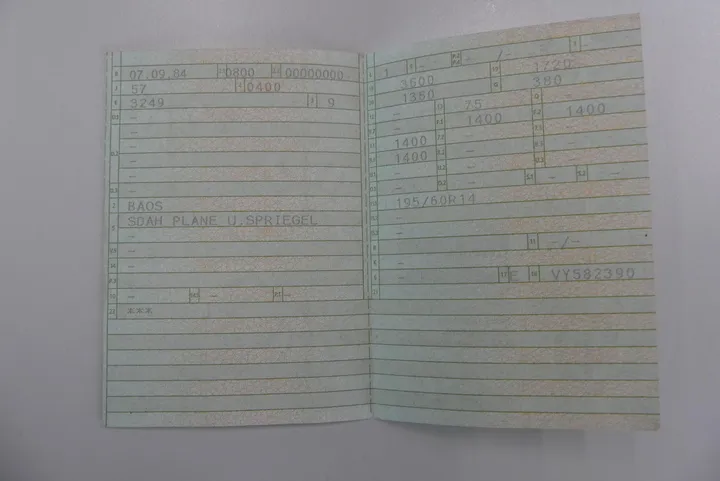 07.09.84 0800 00000000
57 0400
3249 9
-
-
-
-
BAOS
SDAH PLANE U.SPRIEGEL
-
-
-
- - -
***
1 - - / - -
3600 1720
1350 380
- 75 -
- 1400 1400
1400 - -
1400 - -
- - -
- - - -
195/60R14
-
-
- -/-
-
- E VY582390